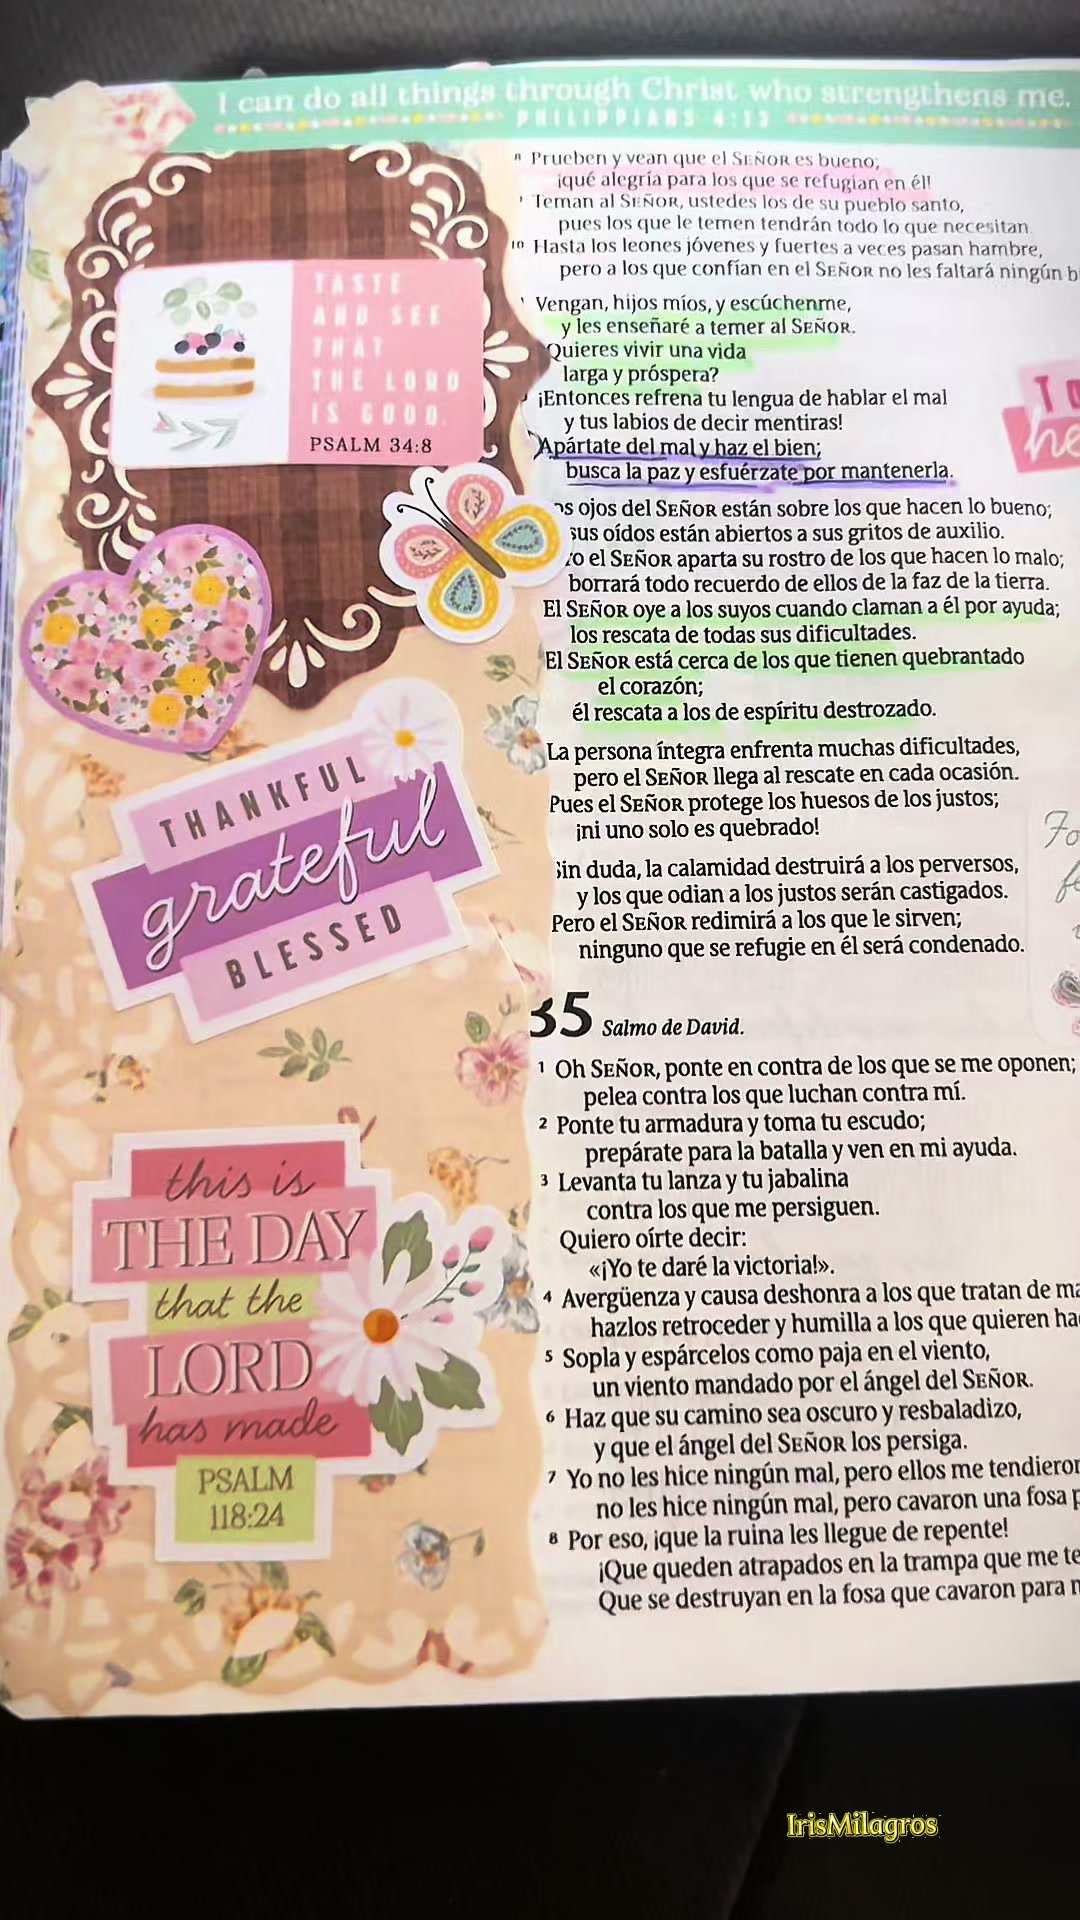 I can do all things through Christ who strengthens me.
PHILIPPIANS 4:13
TASTE
AND SEE
THAT
THE LORD
IS GOOD.
PSALM 34:8
THANKFUL
grateful
BLESSED
this is
THE DAY
that the
LORD
has made
PSALM
118:24
8 Prueben y vean que el SEÑOR es bueno;
¡qué alegría para los que se refugian en él!
Teman al SEÑOR, ustedes los de su pueblo santo,
pues los que le temen tendrán todo lo que necesitan.
10 Hasta los leones jóvenes y fuertes a veces pasan hambre,
pero a los que confían en el SEÑOR no les faltará ningún
Vengan, hijos míos, y escúchenme,
y les enseñaré a temer al SEÑOR.
Quieres vivir una vida
larga y próspera?
¡Entonces refrena tu lengua de hablar el mal
y tus labios de decir mentiras!
Apártate del mal y haz el bien;
busca la paz y esfuérzate por mantenerla.
os ojos del SEÑOR están sobre los que hacen lo bueno;
sus oídos están abiertos a sus gritos de auxilio.
ro el SEÑOR aparta su rostro de los que hacen lo malo;
borrará todo recuerdo de ellos de la faz de la tierra.
El SEÑOR oye a los suyos cuando claman a él por ayuda;
los rescata de todas sus dificultades.
El SEÑOR está cerca de los que tienen quebrantado
el corazón;
él rescata a los de espíritu destrozado.
La persona íntegra enfrenta muchas dificultades,
pero el SEÑOR llega al rescate en cada ocasión.
Pues el SEÑOR protege los huesos de los justos;
¡ni uno solo es quebrado!
Sin duda, la calamidad destruirá a los perversos,
y los que odian a los justos serán castigados.
Pero el SEÑOR redimirá a los que le sirven;
ninguno que se refugie en él será condenado.
35 Salmo de David.
1 Oh SEÑOR, ponte en contra de los que se me oponen;
pelea contra los que luchan contra mí.
2 Ponte tu armadura y toma tu escudo;
prepárate para la batalla y ven en mi ayuda.
3 Levanta tu lanza y tu jabalina
contra los que me persiguen.
Quiero oírte decir:
«¡Yo te daré la victoria!».
4 Avergüenza y causa deshonra a los que tratan de
hazlos retroceder y humilla a los que quieren
5 Sopla y espárcelos como paja en el viento,
un viento mandado por el ángel del SEÑOR.
6 Haz que su camino sea oscuro y resbaladizo,
y que el ángel del SEÑOR los persiga.
7 Yo no les hice ningún mal, pero ellos me tendieron
no les hice ningún mal, pero cavaron una fosa
8 Por eso, ¡que la ruina les llegue de repente!
¡Que queden atrapados en la trampa que me
Que se destruyan en la fosa que cavaron para
IrisMilagros